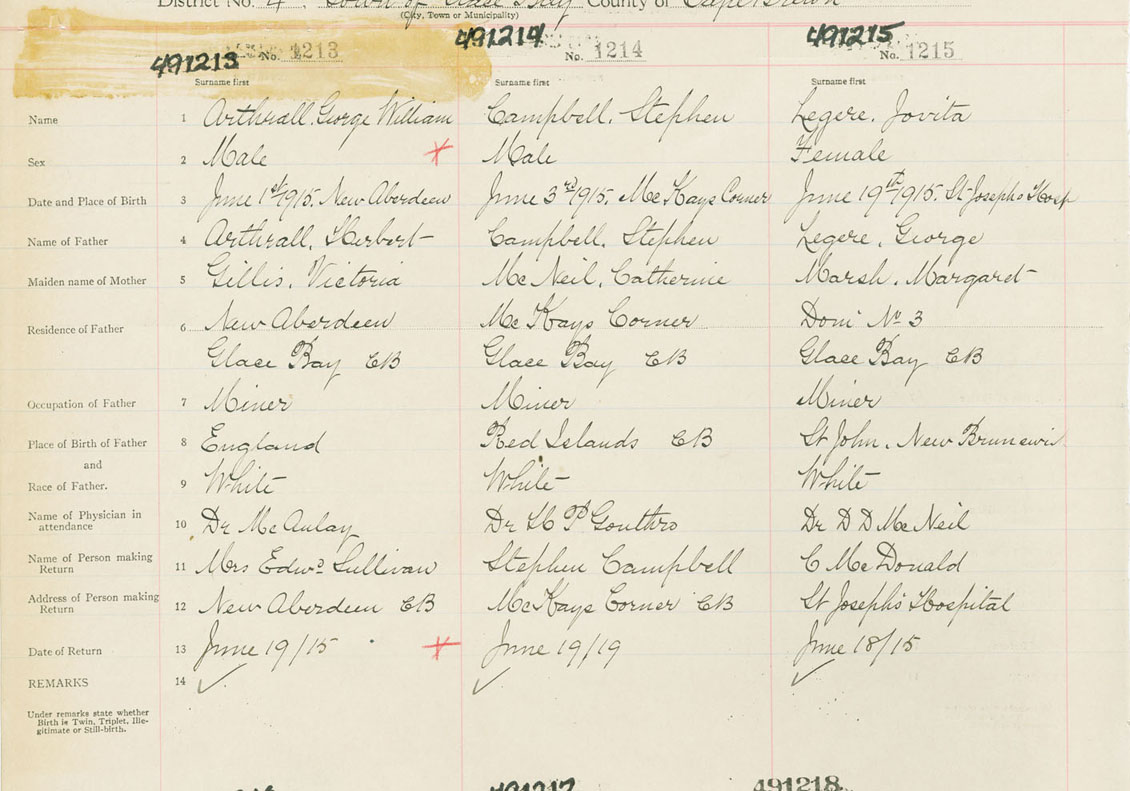 District No. 4. Town of Glace Bay County of Cape Breton
(City, Town or Municipality)
491213 491214 491215
No. 1213 No. 1214 No. 1215
Surname first Surname first Surname first
Name 1 Arthrall. George William Campbell. Stephen Legere. Jovita
Sex 2 Male Male Female
Date and Place of Birth 3 June 1st 1915. New Aberdeen June 3rd 1915. McKays Corner June 19th 1915. St Josephs Hosp
Name of Father 4 Arthrall. Herbert Campbell. Stephen Legere. George
Maiden name of Mother 5 Gillis. Victoria McNeil. Catherine Marsh. Margaret
Residence of Father 6 New Aberdeen McKays Corner Dom No 3
Glace Bay CB Glace Bay CB Glace Bay CB
Occupation of Father 7 Miner Miner Miner
Place of Birth of Father 8 England Red Islands CB St John. New Brunswic
and
Race of Father. 9 White White White
Name of Physician in
attendance 10 Dr McAulay Dr H P Gouthro Dr D D McNeil
Name of Person making
Return 11 Mrs Edwd Sullivan Stephen Campbell C McDonald
Address of Person making
Return 12 New Aberdeen CB McKays Corner CB St Joseph's Hospital
Date of Return 13 June 19/15 June 19/19 June 18/15
REMARKS 14
Under remarks state whether
Birth is Twin, Triplet, Ille-
gitimate or Still-birth.
491217 491218